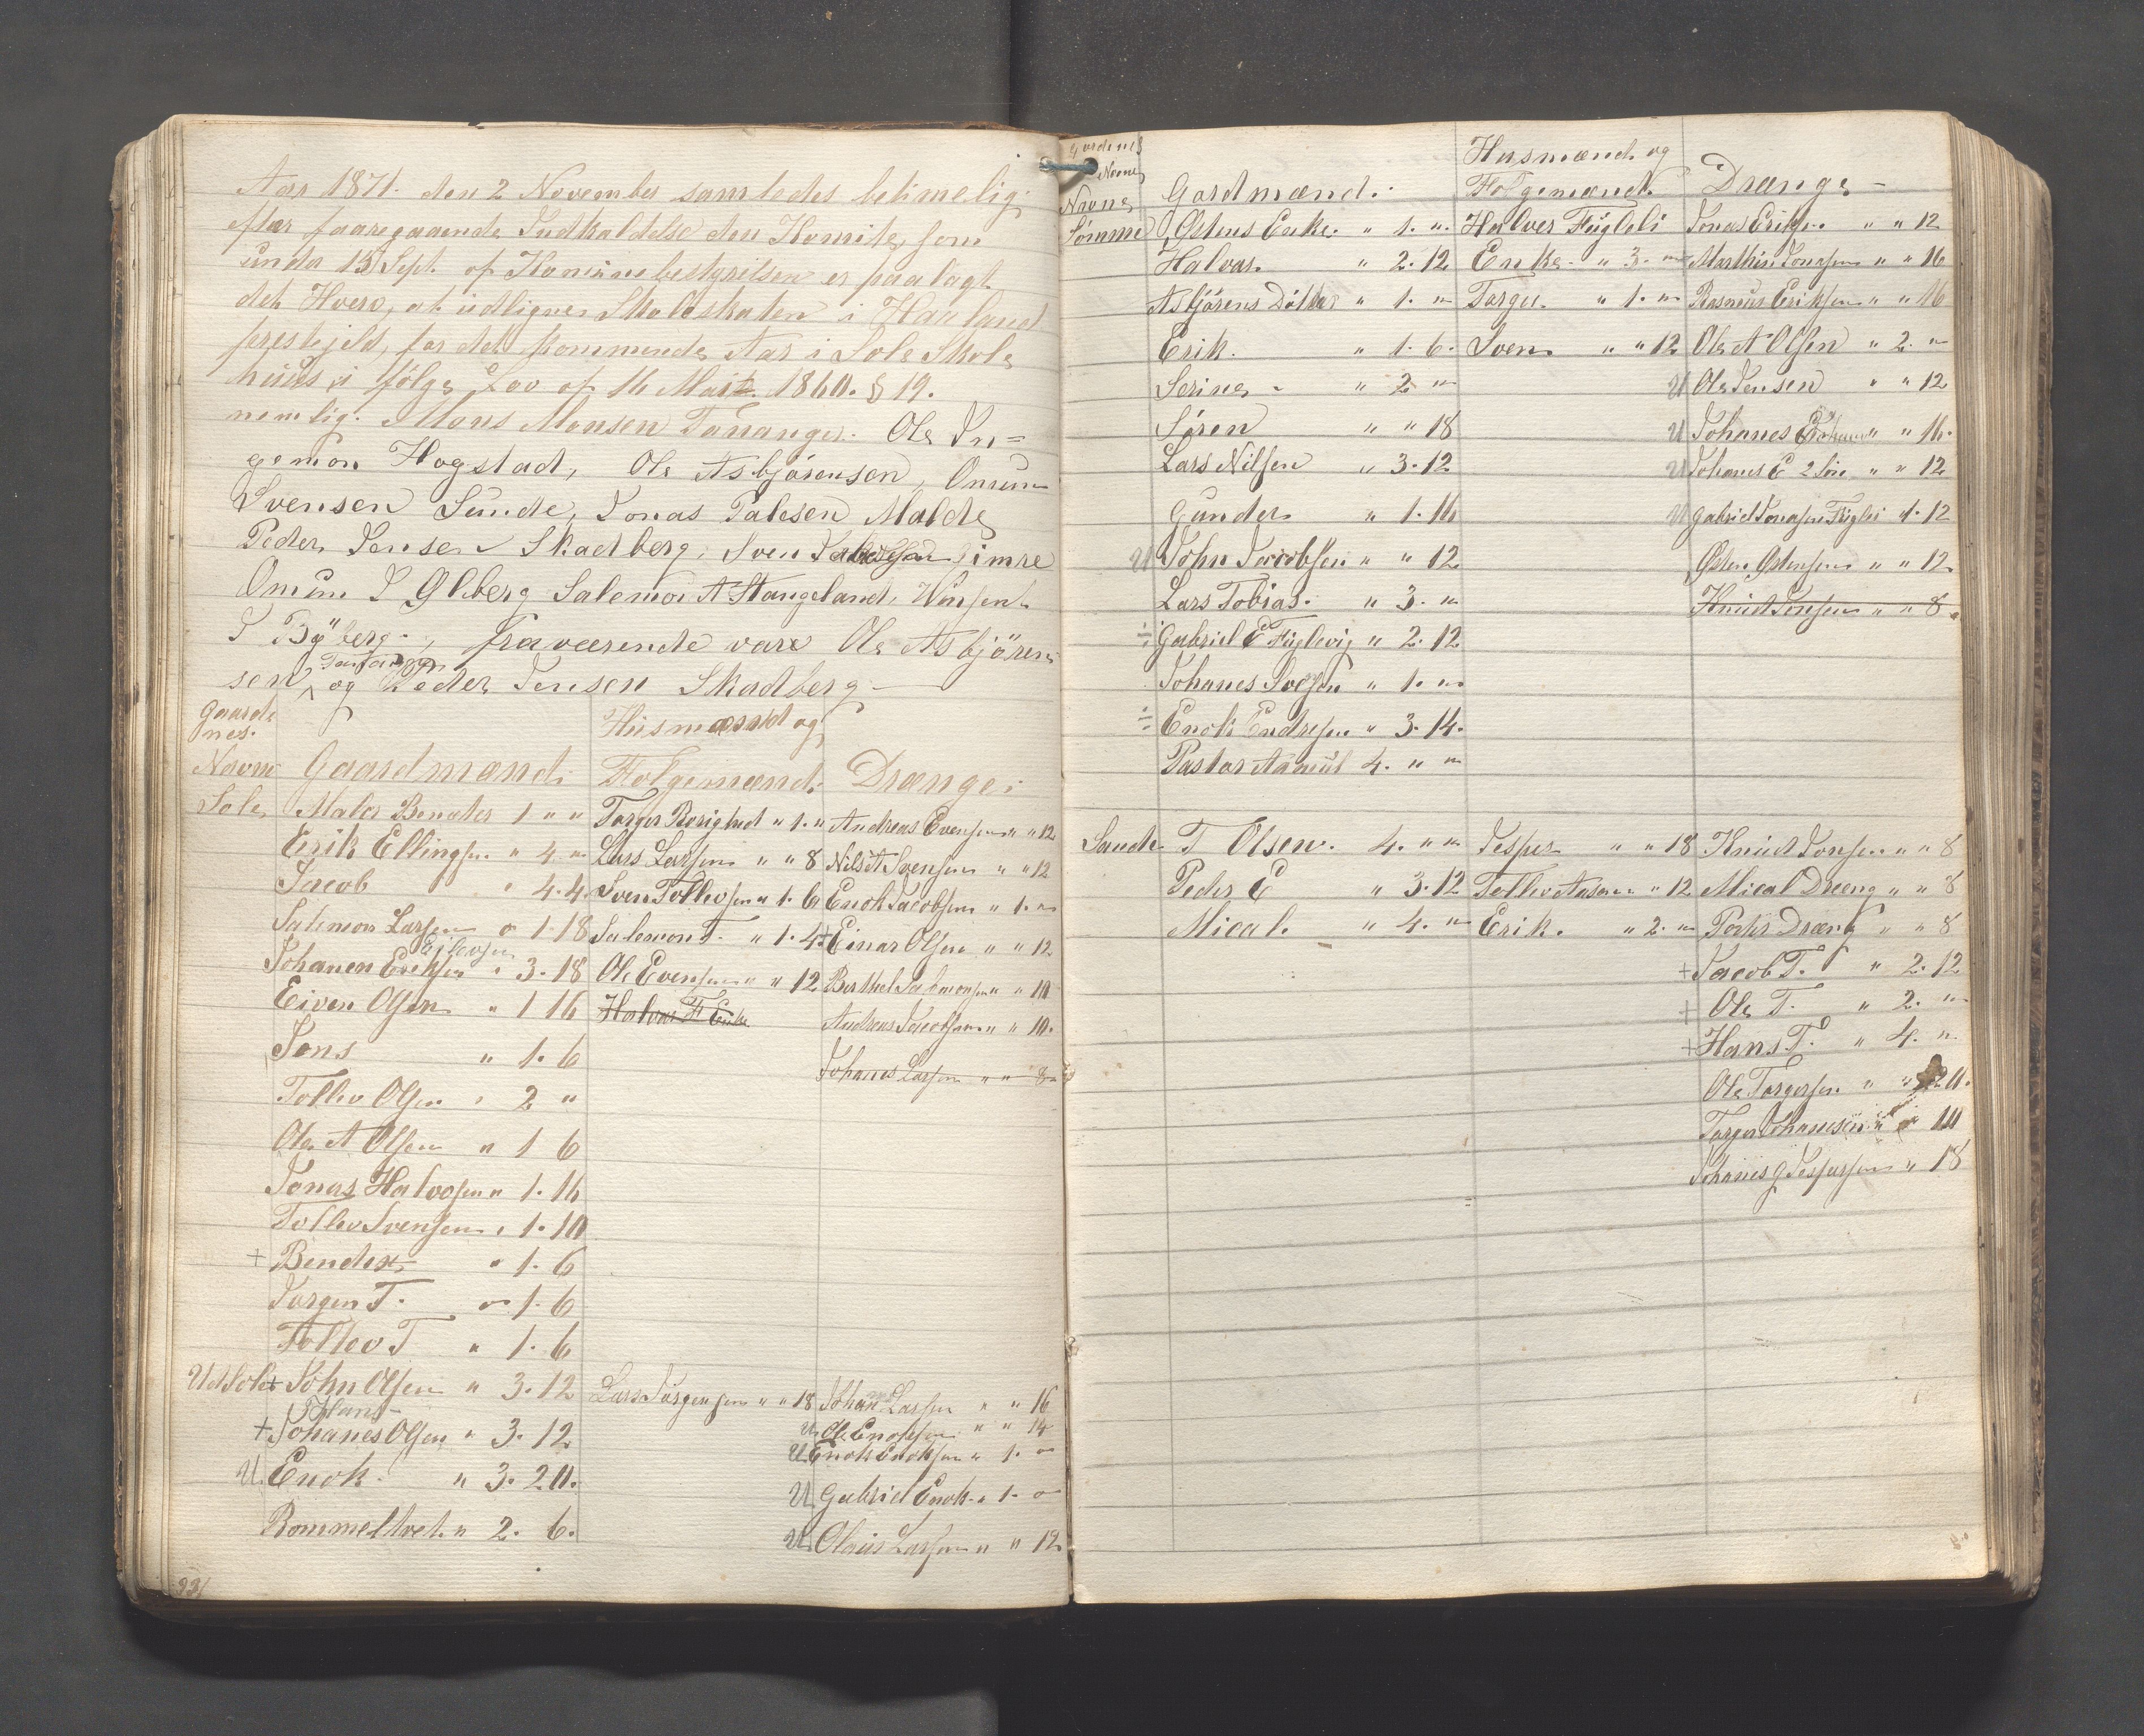 Aar 1871. den 2 November samledes betimelig
efter faaregaaende Indkaldelse den Komite, som
under 15 Sept. af Komunebestyrelsen er paalagt
det Hverv, at udligne Skoleskaten i Haaland
prestejeld, for det kommende Aar i Sole Skole
huus i følge Lov af 16 Mai 1860. § 19.
nemlig. Mons Monsen Tananger. Ole In=
gemon Hogstad, Ole Asbjörensen, Omun
Svensen Sunde, Jonas Palesen Malde
Peder Jensen Skadberg, Sven Simre
Omun I Glberg Salemon A Stangeland, Winsent
I Byberg, fraværende vare Ole Asbjören
sen Tananger og Peder Jensen Skadberg —
Gaarde
nes.
Navne Gaardmænd: Husmænd og Folgemænd: Drænge:
Sole Maler Benates 1 " " Torger Rosighed " 1. " Andreas Evensen " " 12
Erik Ellingsen " 4 " Lars Larsen " " 8 Nils A Svensen " " 12
Jacob " 4. 4 Sven Tollevsen " 1. 6 Enok Jacobsen " 1. "
Salemon Larsen " 1. 18 Salemon T. " 1. 4 + Einar Olsen " " 12
Ejlevsen
Johanen Eriksen " 3. 18 Ole Evensen " " 12 Berthel Salomonsen " " 10
Eiven Olsen " 1 16 Halvor F Enke Andreas Jacobsen " " 10.
Jons " 1. 6 Johanes Larsen " " 8
Tollev Olsen " 2 "
Ole A Olsen " 1 6
Jonas Halvosen " 1. 16
Tollev Svensen " 1. 10
+ Bendix " 1. 6
Jorgen T. " 1. 6
Tollev T " 1. 6
Ud Sole + John Olsen " 3. 12 Lars Jörgensen " " 18 Johan Larsen " " 16
Hans
+ Johanes Olsen " 3. 12 U Ole Enoksen " " 14
U Enok Enoksen " 1. "
U. Enok. " 3. 20. U Gabriel Enok. " 1. "
Rommeltvet. " 2. 6. U Olaus Larsen " " 12
231
Gardenes
Navne
Navne Gardmænd: Husmænd og Følgemænd. Drænge —
Sömme Østens Enke. " 1. " Halver Fugleli Jonas Eriksen " " 12
Halvor. " 2. 12 Enke. " 3. " Marthin Jonasen " " 16
Asbjörens Dötter " 1. " Torger " 1. " Rasmus Eriksen " " 16
Erik. " 1. 6. Sven " " 12 Ole A Olsen " 2. "
Serine " 2 " U Ole Jensen " " 12
Søren " " 18 U Johanes " " 16.
Lars Nilsen " 3. 12 U Johanes E 2 Sön " " 12
Gunder " 1. 16 U Gabriel Jonasen Fuglei 1. 12
U John Jacobsen " " 12 Østen Østensen " " 12
Lars Tobias. " 3. " Knud Jonsen " " 8
÷ Gabriel E Fuglevig " 2. 12
Johanes " 1. "
÷ Enok Endresen " 3. 14.
Pastor 4. " "
Sande T Olsen. 4. " " Jesper " " 18 Knud Jonsen " " 8
Peder E " 3. 12 Tollev Aasen " 12 Mical Dræng " " 8
Mical. " 4. " Erik. " 2. " Peder Dræng " " 8
+ Jacob T. " 2. 12
+ Ole T. " 2. "
+ Hans T. " 4. "
Ole Torgersen " " 20.
Torger Johanesen " " 10
Johanes G Jespersen " 18